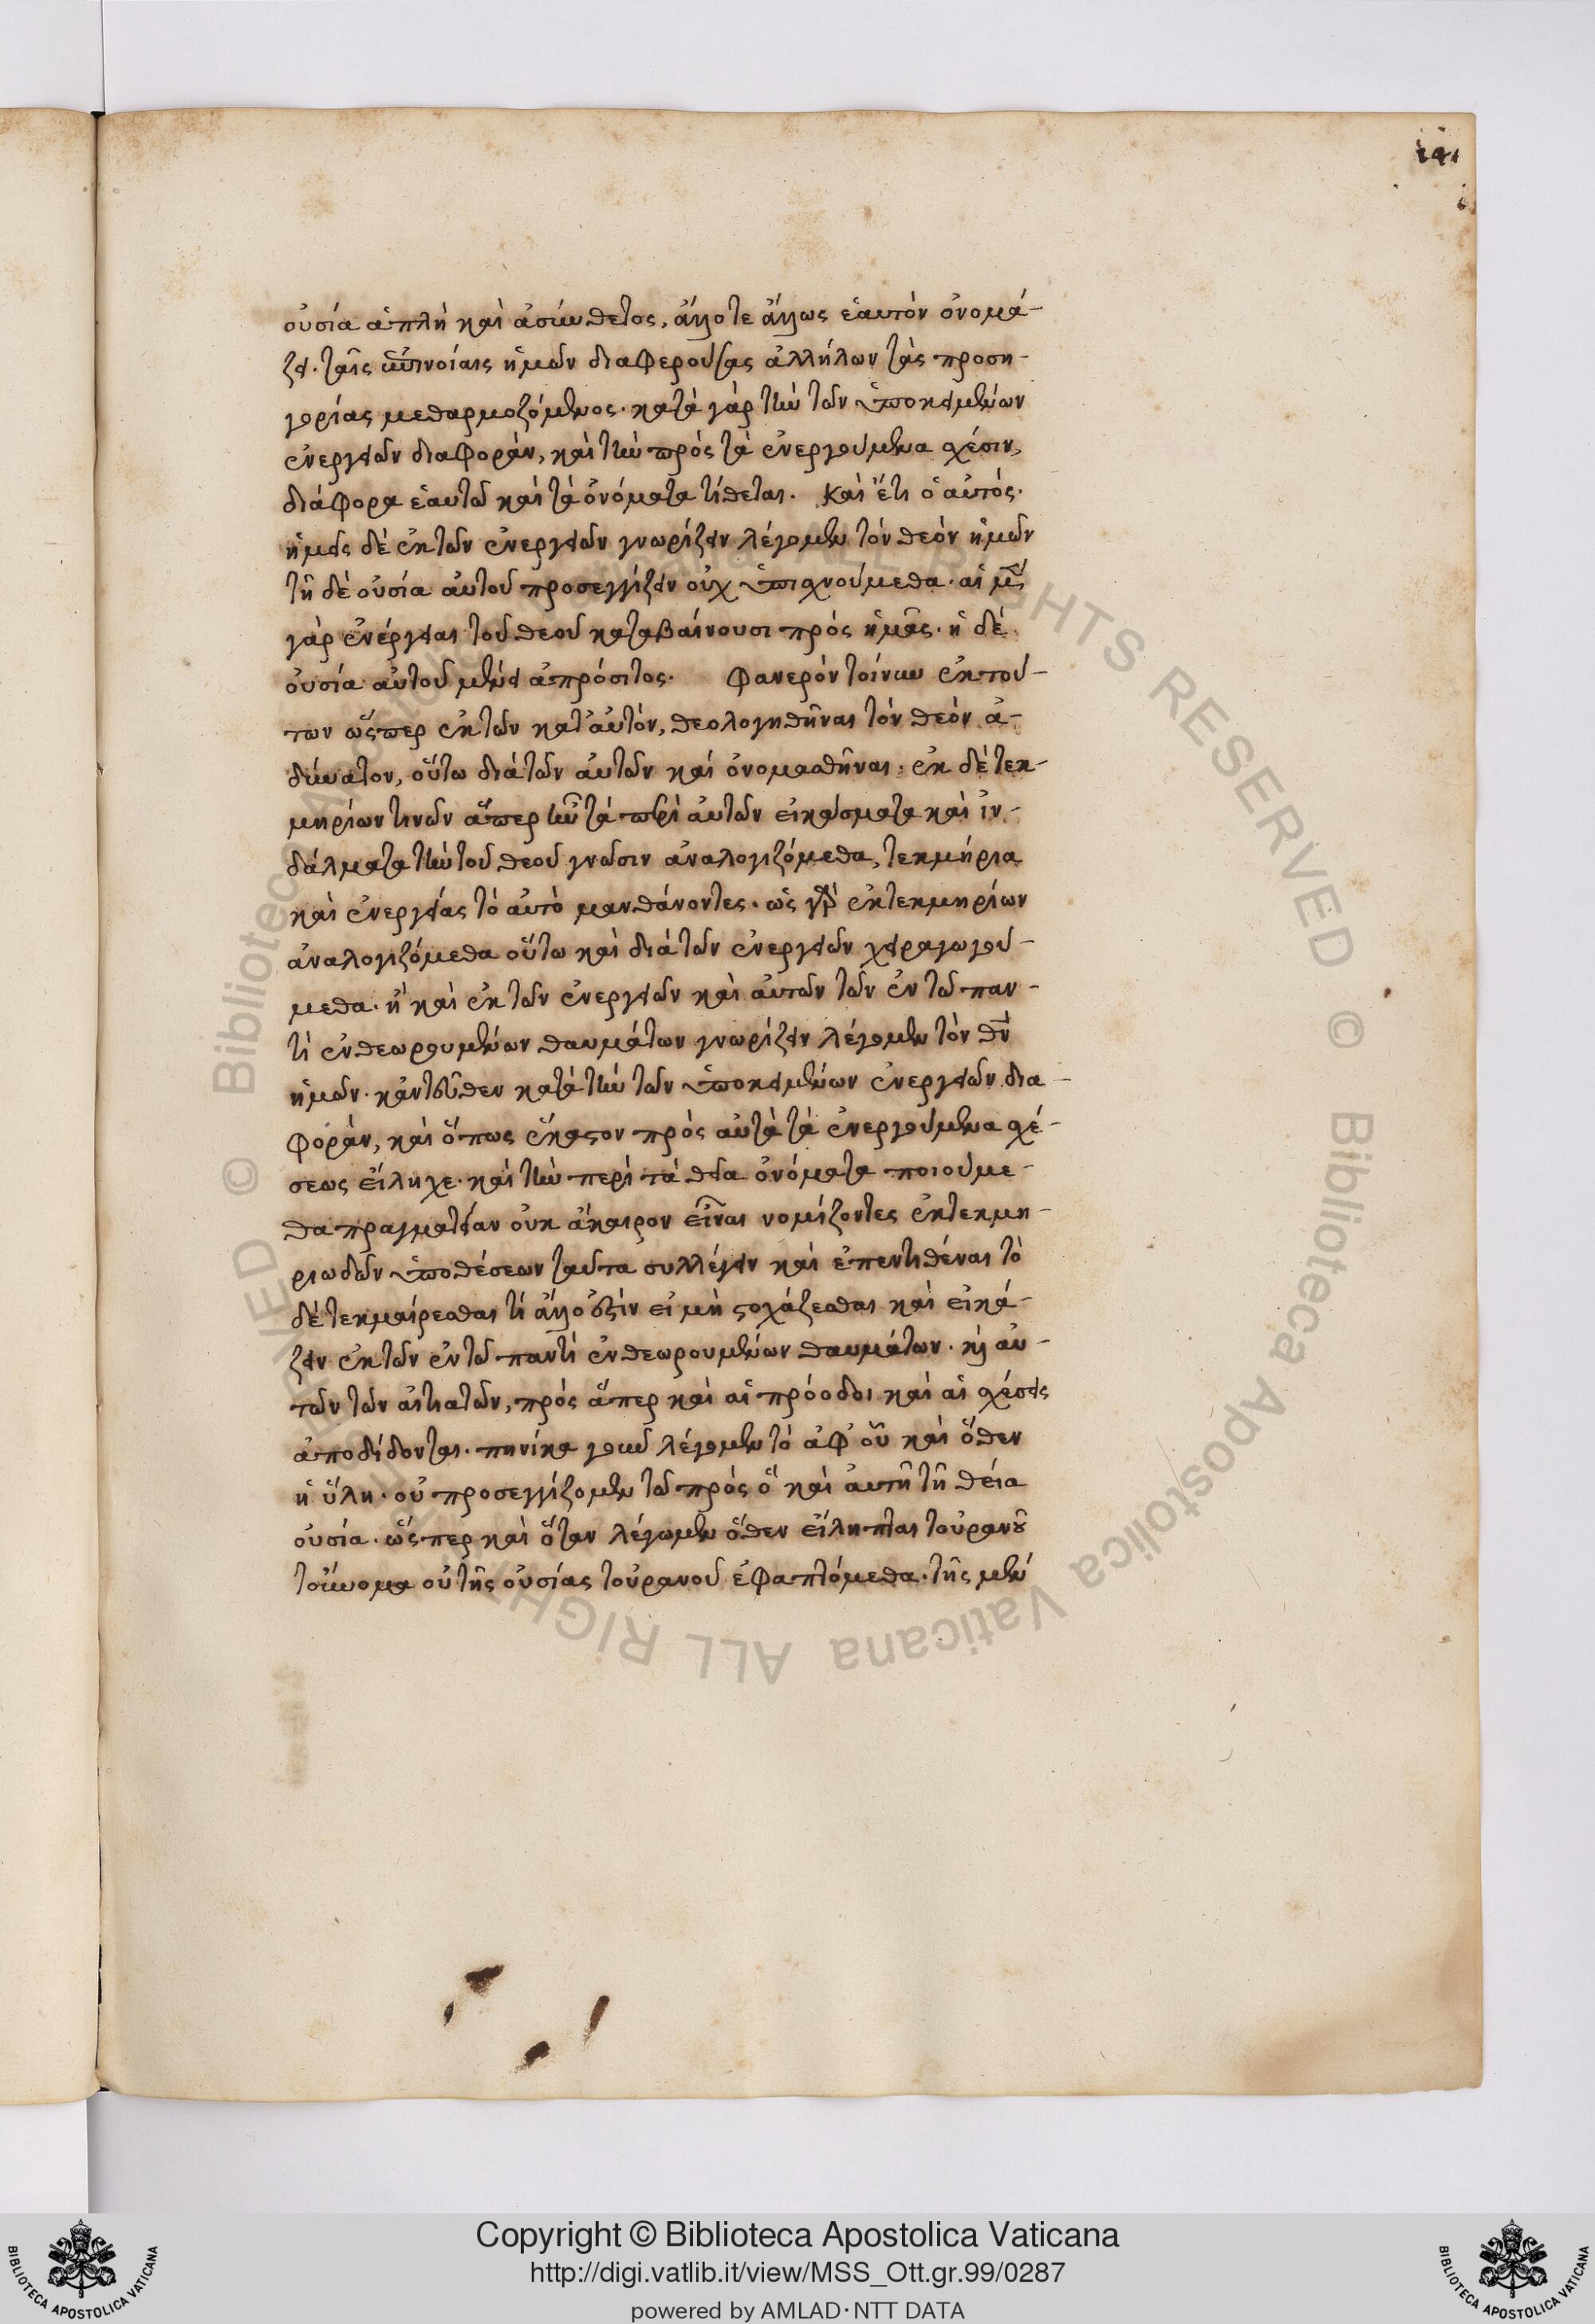 141
οὐσία ἁπλῆ καὶ ἀσύνθετος, ἄλλοτε ἄλλως ἑαυτὸν ὀνομά-
ζει. ταῖς ἐπινοίαις ἡμῶν διαφερούσας ἀλλήλων τὰς προση-
γορίας μεθαρμοζόμενος. κατὰ γὰρ τὴν τῶν ὑποκειμένων
ἐνεργειῶν διαφορὰν, καὶ τὴν πρὸς τὰ ἐνεργούμενα σχέσιν,
διάφορα ἑαυτῶ καὶ τὰ ὀνόματα τίθεται. Καὶ ἔτι ὁ αὐτός.
ἡμεῖς δὲ ἐκ τῶν ἐνεργειῶν γνωρίζειν λέγομεν τὸν θεὸν ἡμῶν
τῆ δὲ οὐσία αὐτοῦ προσεγγίζειν οὐχ ὑπισχνούμεθα. αἱ μὲν
γὰρ ἐνέργειαι τοῦ θεοῦ καταβαίνουσι πρὸς ἡμᾶς. ἡ δὲ
οὐσία αὐτοῦ μένει ἀπρόσιτος. Φανερὸν τοίνυν ἐκ τού-
των ὥσπερ ἐκ τῶν κατ' αὐτὸν, θεολογηθῆναι τὸν θεὸν ἀ-
δύνατον, οὕτω διὰ τῶν αὐτῶν καὶ ὀνομασθῆναι. ἐκ δὲ τεκ-
μηρίων τινῶν ἅπερ ἦν τὰ περὶ αὐτῶν εἰκάσματα καὶ ἰν-
δάλματα τὴν τοῦ θεοῦ γνῶσιν ἀναλογιζόμεθα, τεκμήρια
καὶ ἐνεργείας τὸ αὐτὸ μανθάνοντες. ὡς γὰρ ἐκ τεκμηρίων
ἀναλογιζόμεθα οὕτω καὶ διὰ τῶν ἐνεργειῶν χειραγωγού-
μεθα. ἢ καὶ ἐκ τῶν ἐνεργειῶν καὶ αὐτῶν τῶν ἐν τῶ παν-
τὶ ἐνθεωρουμένων θαυμάτων γνωρίζειν λέγομεν τὸν θν
ἡμῶν. κἀντεῦθεν κατὰ τὴν τῶν ὑποκειμένων ἐνεργειῶν δια-
φορὰν, καὶ ὅπως ἕκαστον πρὸς αὐτὰ τὰ ἐνεργούμενα σχέ-
σεως εἴληχε. καὶ τὴν περὶ τὰ θεῖα ὀνόματα ποιούμε-
θα πραγματείαν οὐκ ἄκαιρον εἶναι νομίζοντες ἐκ τεκμη-
ριωδῶν ὑποθέσεων ταῦτα συλλέγειν καὶ ἐπεντιθέναι τὸ
δὲ τεκμαίρεσθαι τί ἄλλο ἐστὶν εἰ μὴ στοχάζεσθαι καὶ εἰκά-
ζειν ἐκ τῶν ἐν τῶ παντὶ ἐνθεωρουμένων θαυμάτων. κỳ αὐ-
τῶν τῶν αἰτιατῶν, πρὸς ἅπερ καὶ αἱ πρόοδοι καὶ αἱ σχέσεις
ἀποδίδονται. πηνίκα γοῦν λέγομεν τὸ ἀφ' οὗ καὶ ὅθεν
ἡ ὕλη. οὐ προσεγγίζομεν τῶ πρὸς ὃ καὶ αὐτῆ τῆ θεία
οὐσία. ὥσπερ καὶ ὅταν λέγωμεν ὅθεν εἴληπται τοὐρανοῦ
τοὔνομα οὐ τῆς οὐσίας τοὐρανοῦ ἐφαπτόμεθα. τῆς μὲν
Copyright © Biblioteca Apostolica Vaticana
http://digi.vatlib.it/view/MSS_Ott.gr.99/0287
powered by AMLAD·NTT DATA